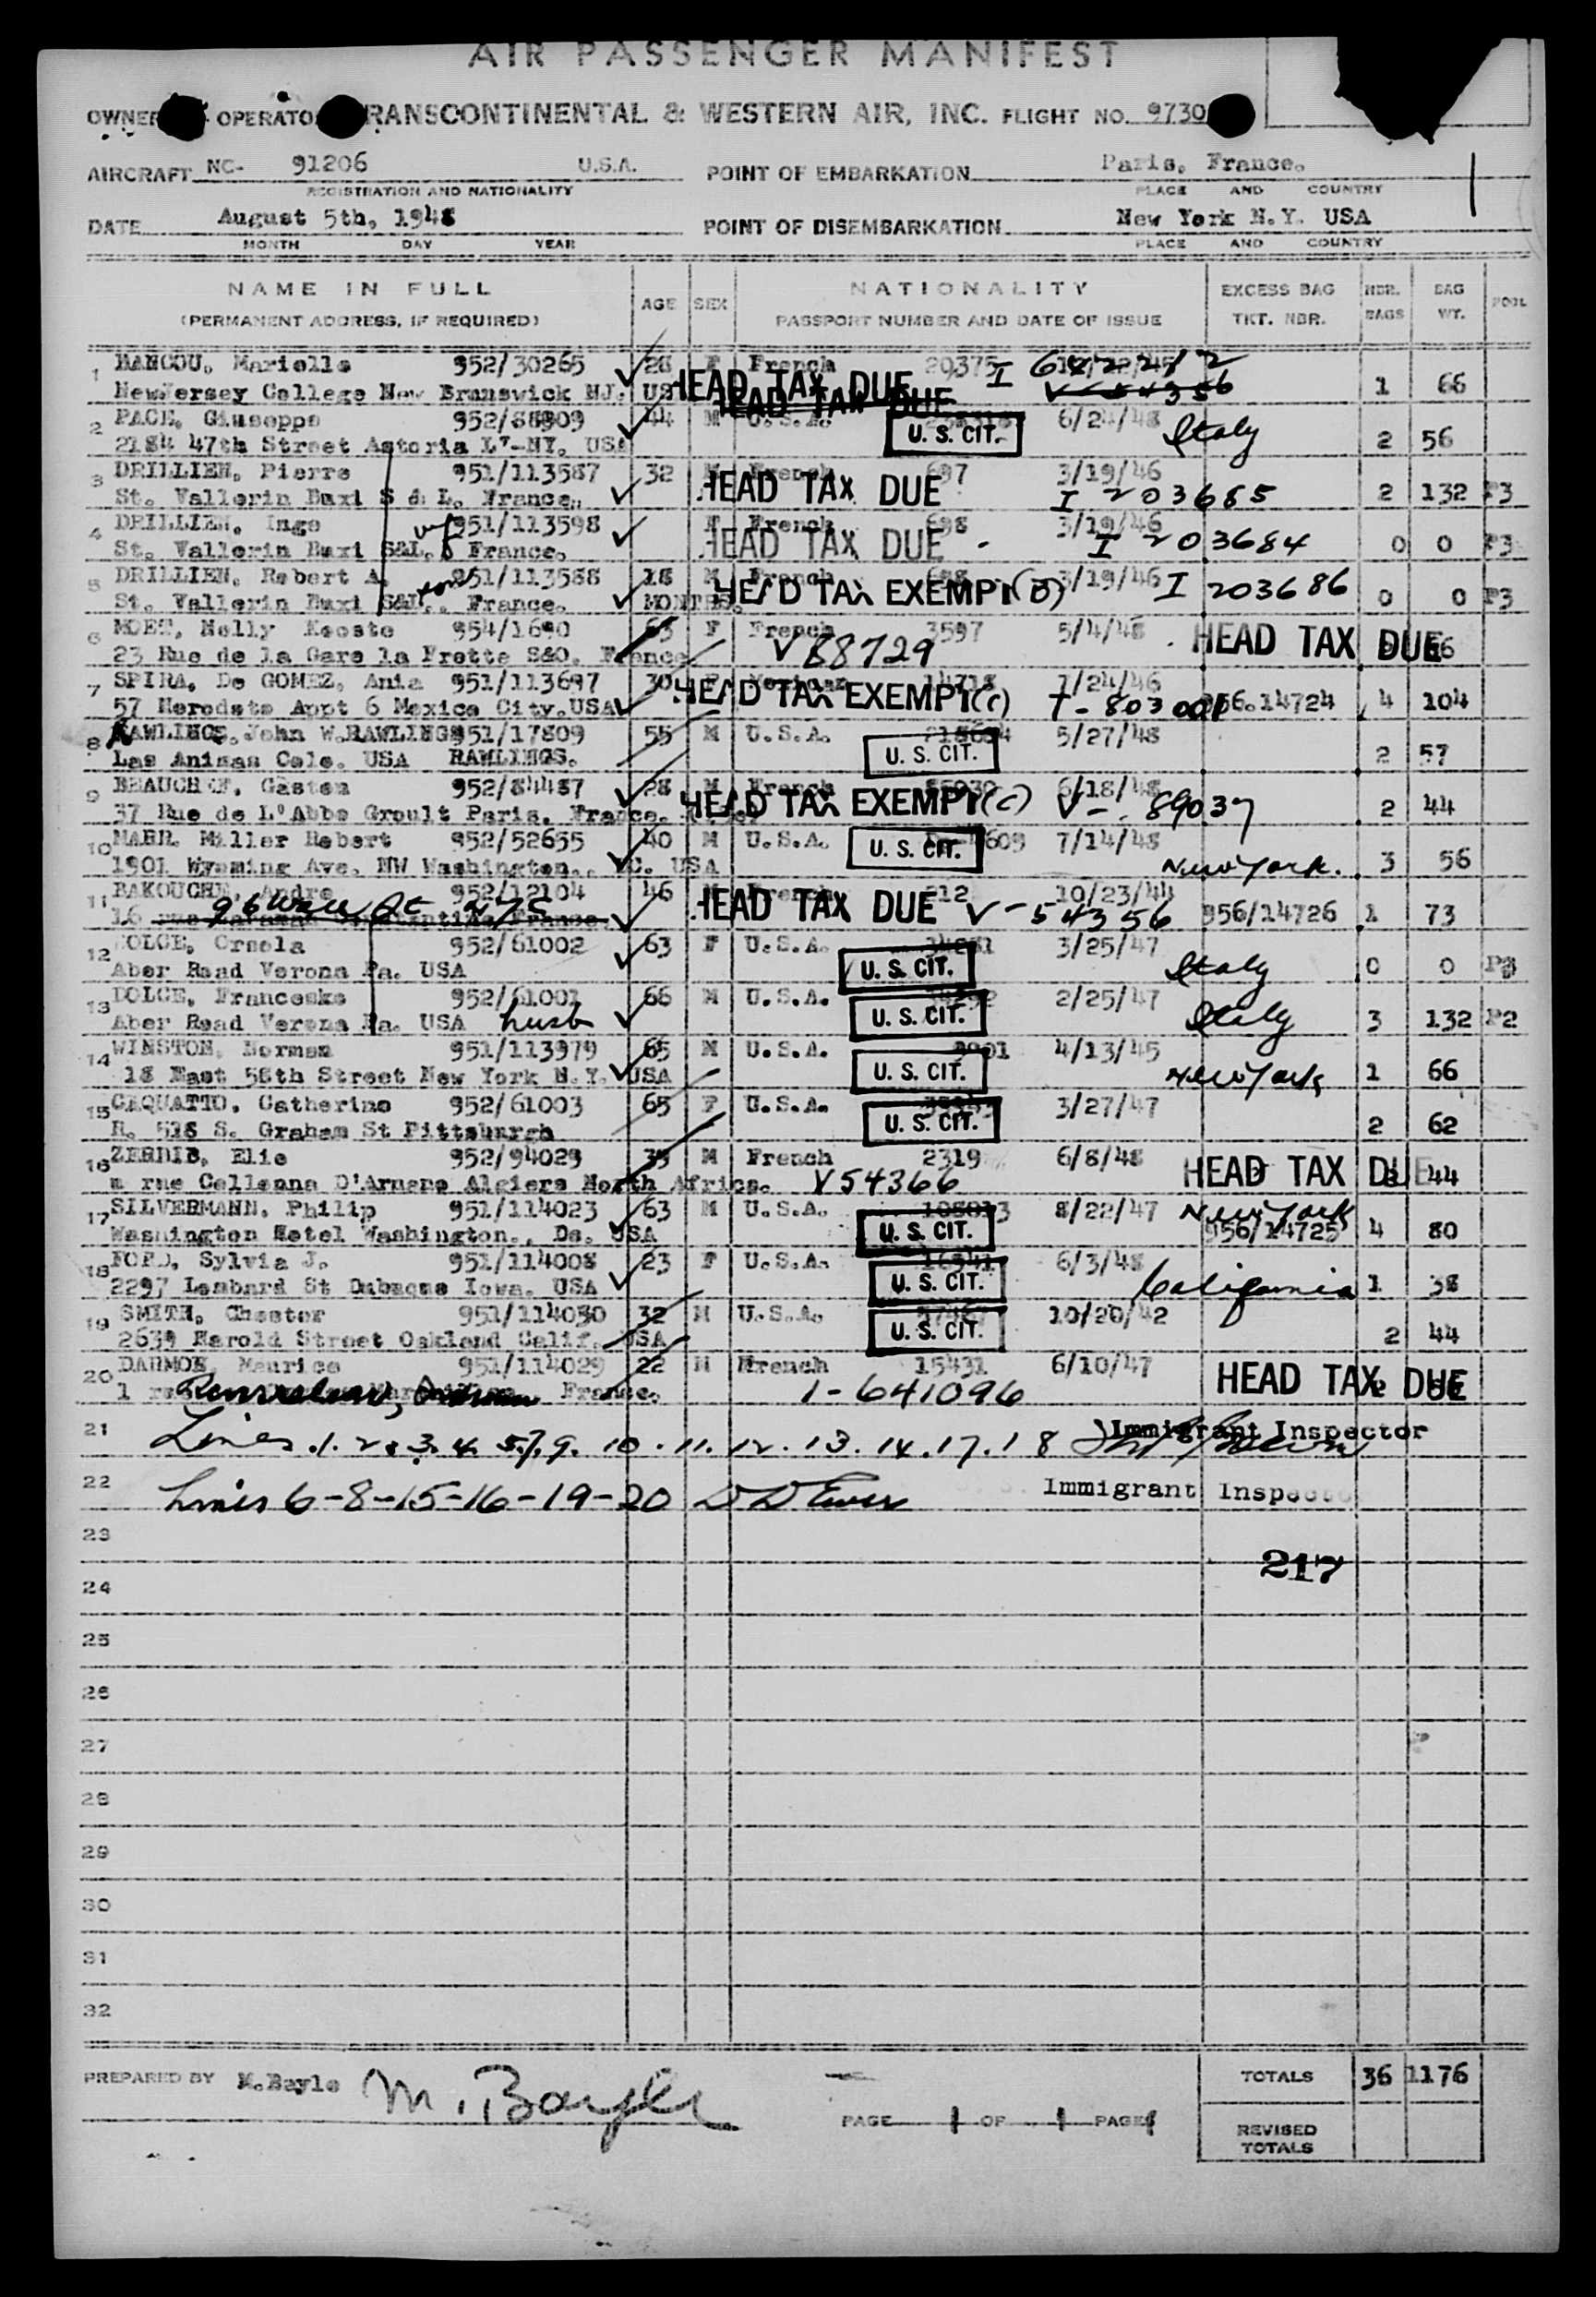 AIR PASSENGER MANIFEST
OWNER OPERATO RANSCONTINENTAL & WESTERN AIR, INC. FLIGHT NO. 9730
AIRCRAFT NC- 91206 U.S.A. POINT OF EMBARKATION Paris, France.
REGISTRATION AND NATIONALITY PLACE AND COUNTRY
DATE August 5th, 1948 POINT OF DISEMBARKATION New York N.Y. USA
MONTH DAY YEAR PLACE AND COUNTRY
NAME IN FULL AGE SEX NATIONALITY EXCESS BAG NBR. BAG POOL
(PERMANENT ADDRESS, IF REQUIRED) PASSPORT NUMBER AND DATE OF ISSUE TKT. NBR. BAGS WT.
1 MANCOU, Marielle 952/30265 28 F French 20375 I
NewJersey College New Brunswick NJ. US HEAD TAX DUE V-54356 1 66
HEAD TAX DUE
2 PACE, Giuseppe 44 M U.S.A. 6/24/48
2184 47th Street Astoria USA U. S. CIT. Italy 2 56
3 DRILLIEN, Pierre 951/113587 32 M French 697 3/19/46
St. Vallerin Buxi S & L. France. HEAD TAX DUE I 203685 2 132 P3
4 DRILLIEN, Inge wf 951/113598 F French 698 3/19/46
St. Vallerin Buxi S&L. France. HEAD TAX DUE - I 203684 0 0 P3
5 DRILLIEN, Robert A. son 951/113588 18 M French 3/19/46 I 203686
St. Vallerin Buxi S&L. France. MONTHS. HEAD TAX EXEMPT(B) 0 0 P3
6 MOET, Nelly 954/1690 63 F French 3597 5/4/48 HEAD TAX DUE
23 Rue de la Gare la Frette S&O. France V 88729
7 SPIRA, De GOMEZ, Ania 951/113697 30 F Mexican 14718 1/24/46
57 Herodoto Appt 6 Mexico City.USA HEAD TAX EXEMPT(c) T-803001 956.14724 4 104
8 RAWLINGS, John W.RAWLINGS 951/17809 55 M U.S.A. 5/27/48
Las Animas Colo. USA RAWLINGS. U. S. CIT. 2 57
9 Gaston 952/84487 28 M French 55030 6/18/48
37 Rue de L'Abbe Groult Paris. France. HEAD TAX EXEMPT(c) V-.89037 2 44
10 MARR, Miller Robert 952/52655 40 M U.S.A. 7/14/48
1901 Wyoming Ave. NW Washington., DC. USA U. S. CIT. New York. 3 56
11 BAKOUCHE, Andre 952/12104 46 M French 212 10/23/44
16 HEAD TAX DUE V-54356 956/14726 1 73
12 DOLCE, Orsola 952/61002 63 F U.S.A. 3/25/47
Aber Road Verona Pa. USA U. S. CIT. Italy 0 0
13 DOLCE, Francesko 952/61001 66 M U.S.A. 2/25/47
Aber Road Verona Pa. USA husb U. S. CIT. Italy 3 132 P2
14 WINSTON, Norman 951/113979 65 M U.S.A. 4/13/45
18 East 58th Street New York N.Y. USA U. S. CIT. New York 1 66
15 CAQUATTO, Catherine 952/61003 65 F U.S.A. 3/27/47
R. 518 S. Graham St Pittsburgh U. S. CIT. 2 62
16 ZERDIB, Elie 952/94029 35 M French 2319 6/8/48 HEAD TAX DUE 44
rue North Africa. V54366
17 SILVERMANN, Philip 951/114023 63 M U.S.A. 8/22/47 New York
Washington Hotel Washington., Dc. USA U. S. CIT. 956/14725 4 80
18 FORD, Sylvia J. 951/114008 23 F U.S.A. 16341 6/3/48
2297 Lombard St Dubuque Iowa. USA U. S. CIT. California 1 38
19 SMITH, Chester 951/114030 32 M U.S.A. 10/20/42
2639 Harold Street Oakland Calif. USA U. S. CIT. 2 44
20 DARMON, Maurice 951/114029 22 M French 15431 6/10/47 HEAD TAX DUE
1 France. 1-641096
21 Lines.1.2.3.4.5.7.9.10.11.12.13.14.17.18 Immigrant Inspector
22 Lines 6-8-15-16-19-20 Immigrant Inspecto
23
217
24
25
26
27
28
29
30
31
32
PREPARED BY M.Bayle M. Bayle TOTALS 36 1176
PAGE 1 OF 1 PAGES
REVISED
TOTALS